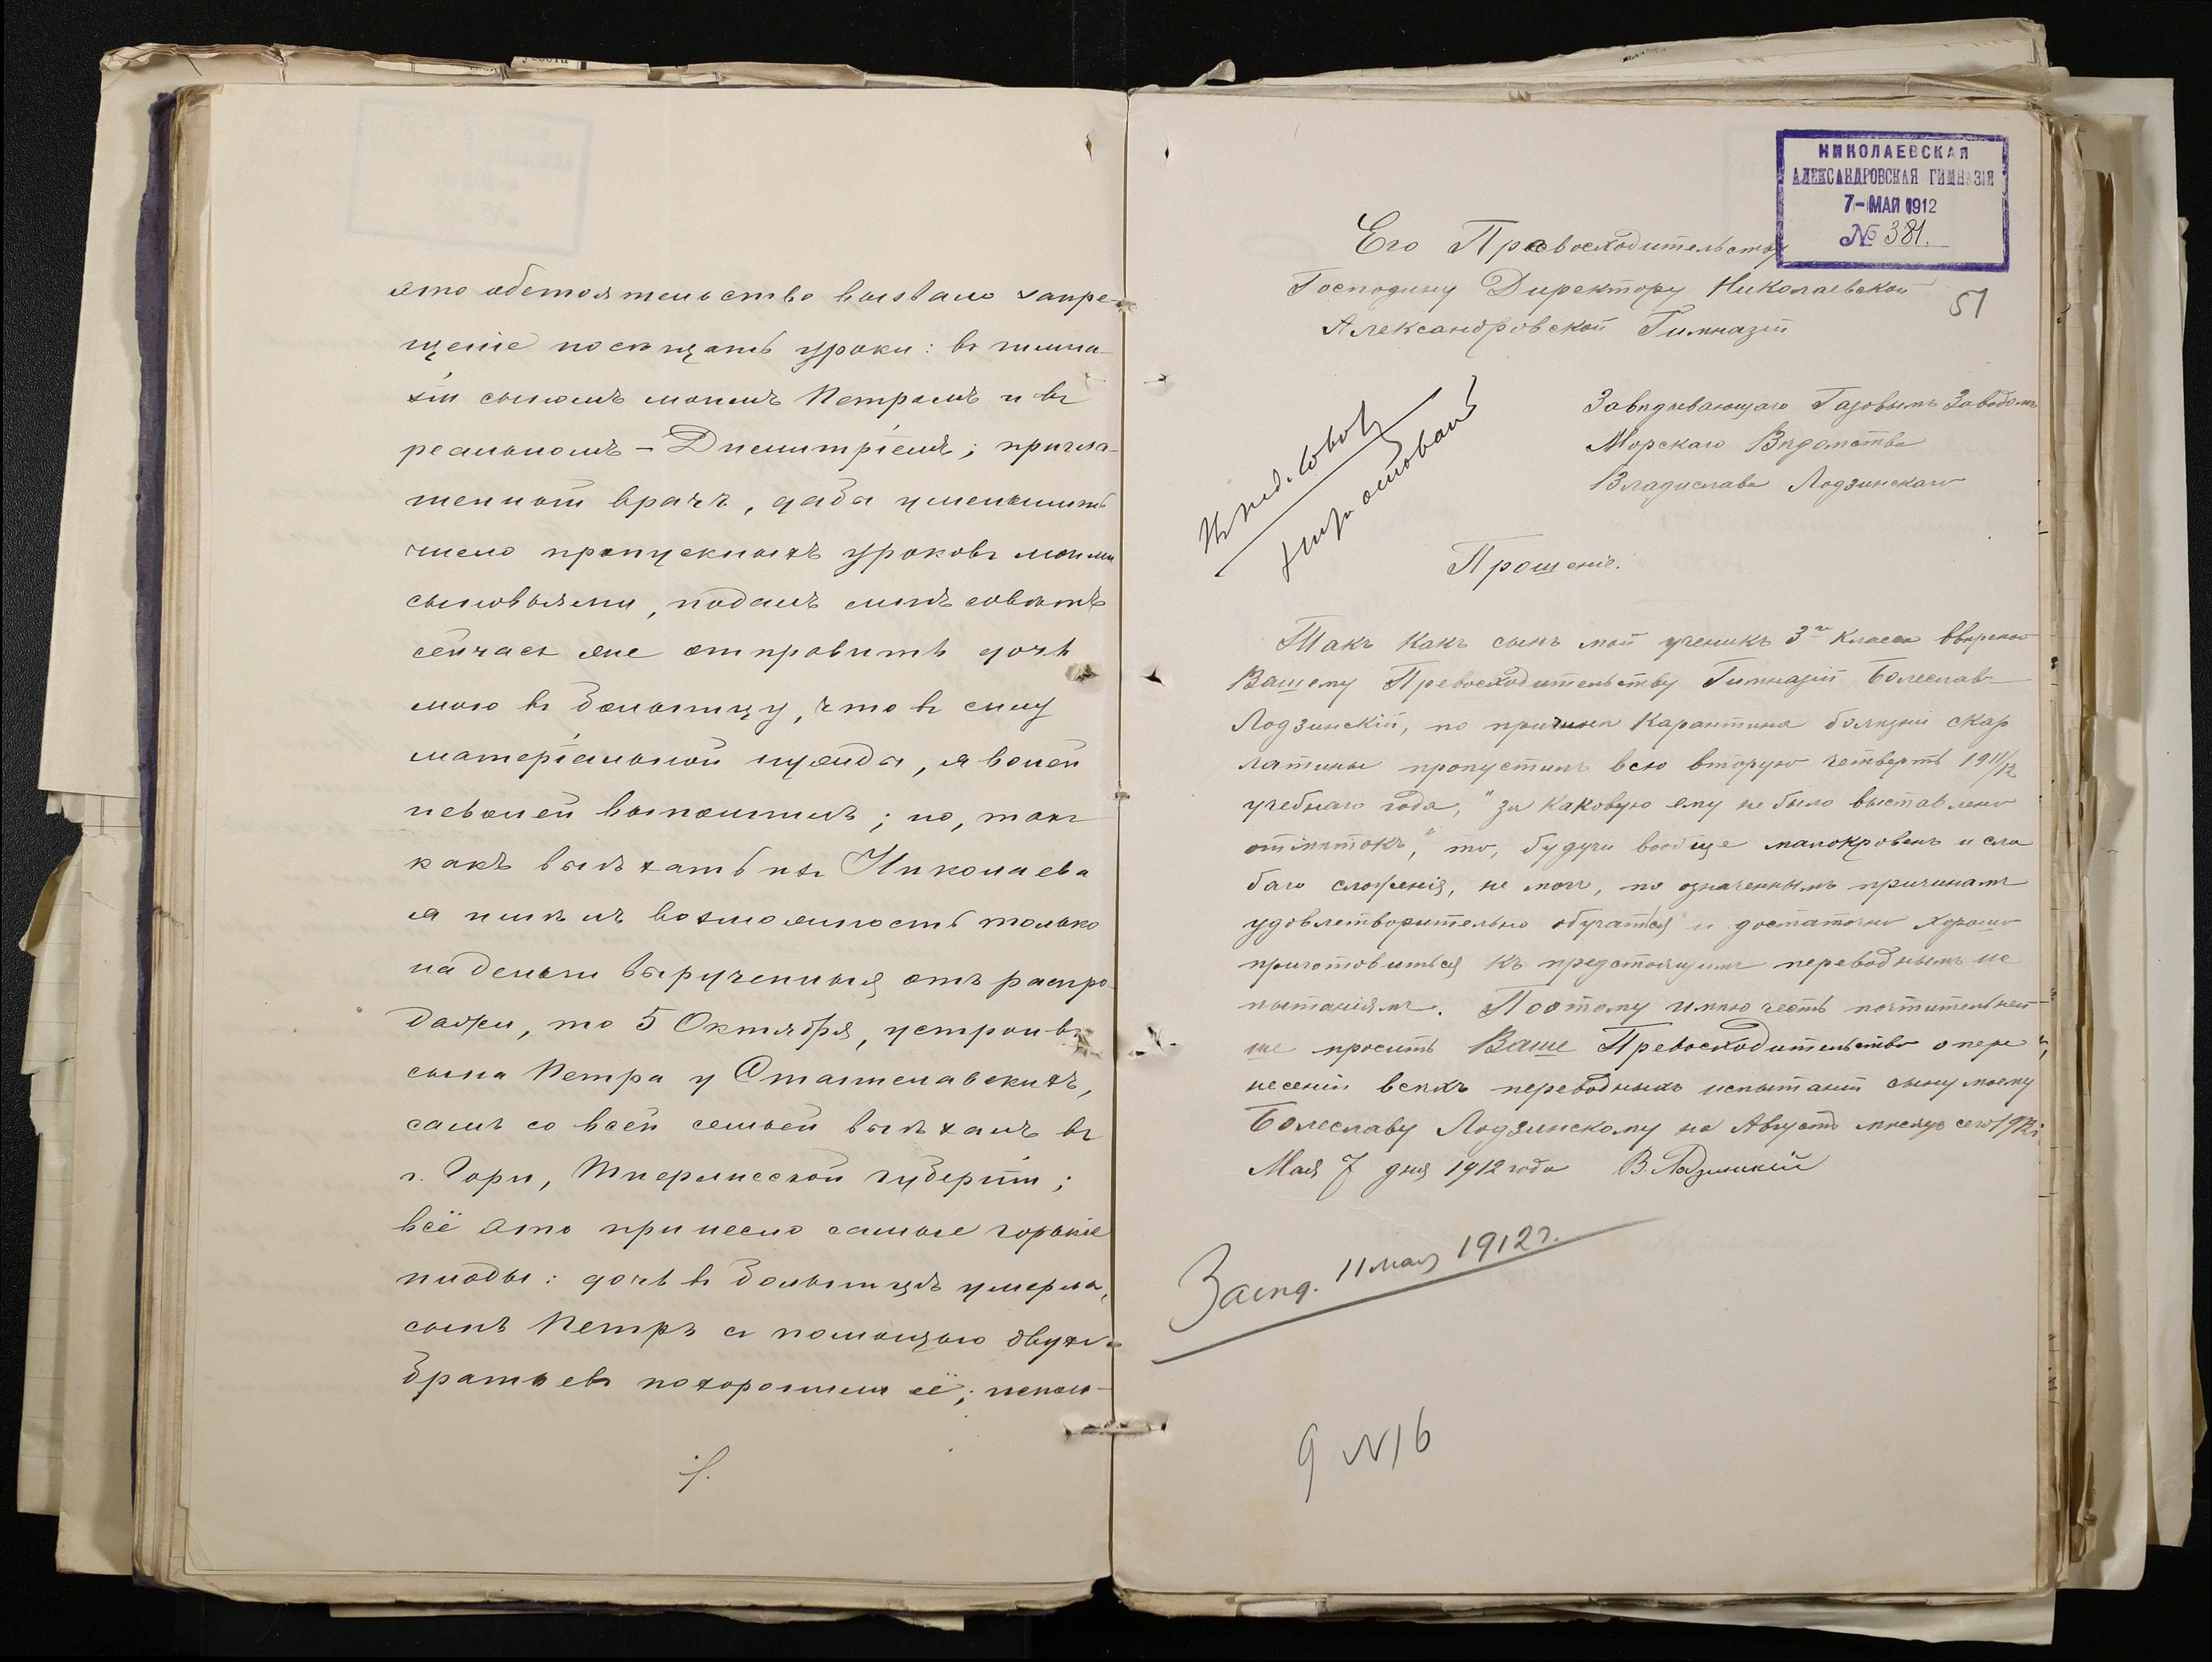 это обстоятельство вызвало запре-
щеніе посѣщать уроки: въ гимна-
зіи сыномъ моимъ Петромъ и въ
реальномъ – Дмитріемъ; пригла-
шенный врачъ, дабы уменьшить
число пропускныхъ уроковъ моими
сыновьями, подалъ мнѣ совѣтъ
сейчасъ же отправить дочь
мою въ больницу, что въ силу
матеріальной нужды, я волей
неволей выполнилъ; но, такъ
какъ выѣхать изъ Николаева
я имѣлъ возможность только
на деньги вырученныя отъ распро-
дажи, то 5 Октября, устроивъ
сына Петра у Станиславскихъ,
самъ со всей семьей выѣхалъ въ
г. Гори, Тифлисской губерніи;
всё это принесло самые горькіе
плоды: дочь въ больницѣ умерла,
сынъ Петръ съ помощью двухъ
братьевъ похоронили её;
НИКОЛАЕВСКАЯ
АЛЕКСАНДРОВСКАЯ ГИМНАЗІЯ
7 – МАЯ 1912
№ 381.
51
Его Превосходительству
Господину Директору Николаевской
Александровской Гимназіи
Завѣдывающаго Газовымъ Заводомъ
Морскаго Вѣдомства
Владислава Лодзинскаго
Прошеніе.
Такъ какъ сынъ мой ученикъ 3го класса ввѣренной
Вашему Превосходительству Гимназіи Болеславъ
Лодзинскій, по причинѣ карантина болѣзни скар
латины пропустилъ всю вторую четверть 1911/12
учебнаго года, "за каковую ему не было выставлено
отмѣтокъ", то, будучи вообще малокровенъ и сла
баго сложенія, не могъ, по означеннымъ причинамъ
удовлетворительно обучаться и достаточно хорошо
приготовиться къ предстоящимъ переводнымъ ис
пытаніямъ. Поэтому имѣю честь почтительнѣй-
ше просить Ваше Превосходительство о пере
несеніи всѣхъ переводныхъ испытаній сыну моему
Болеславу Лодзинскому на Августъ мѣсяцъ сего 1912 г.
Мая 7 дня 1912 года В. Лодзинскій
Засѣд. 11 мая 1912 г.
9 N16